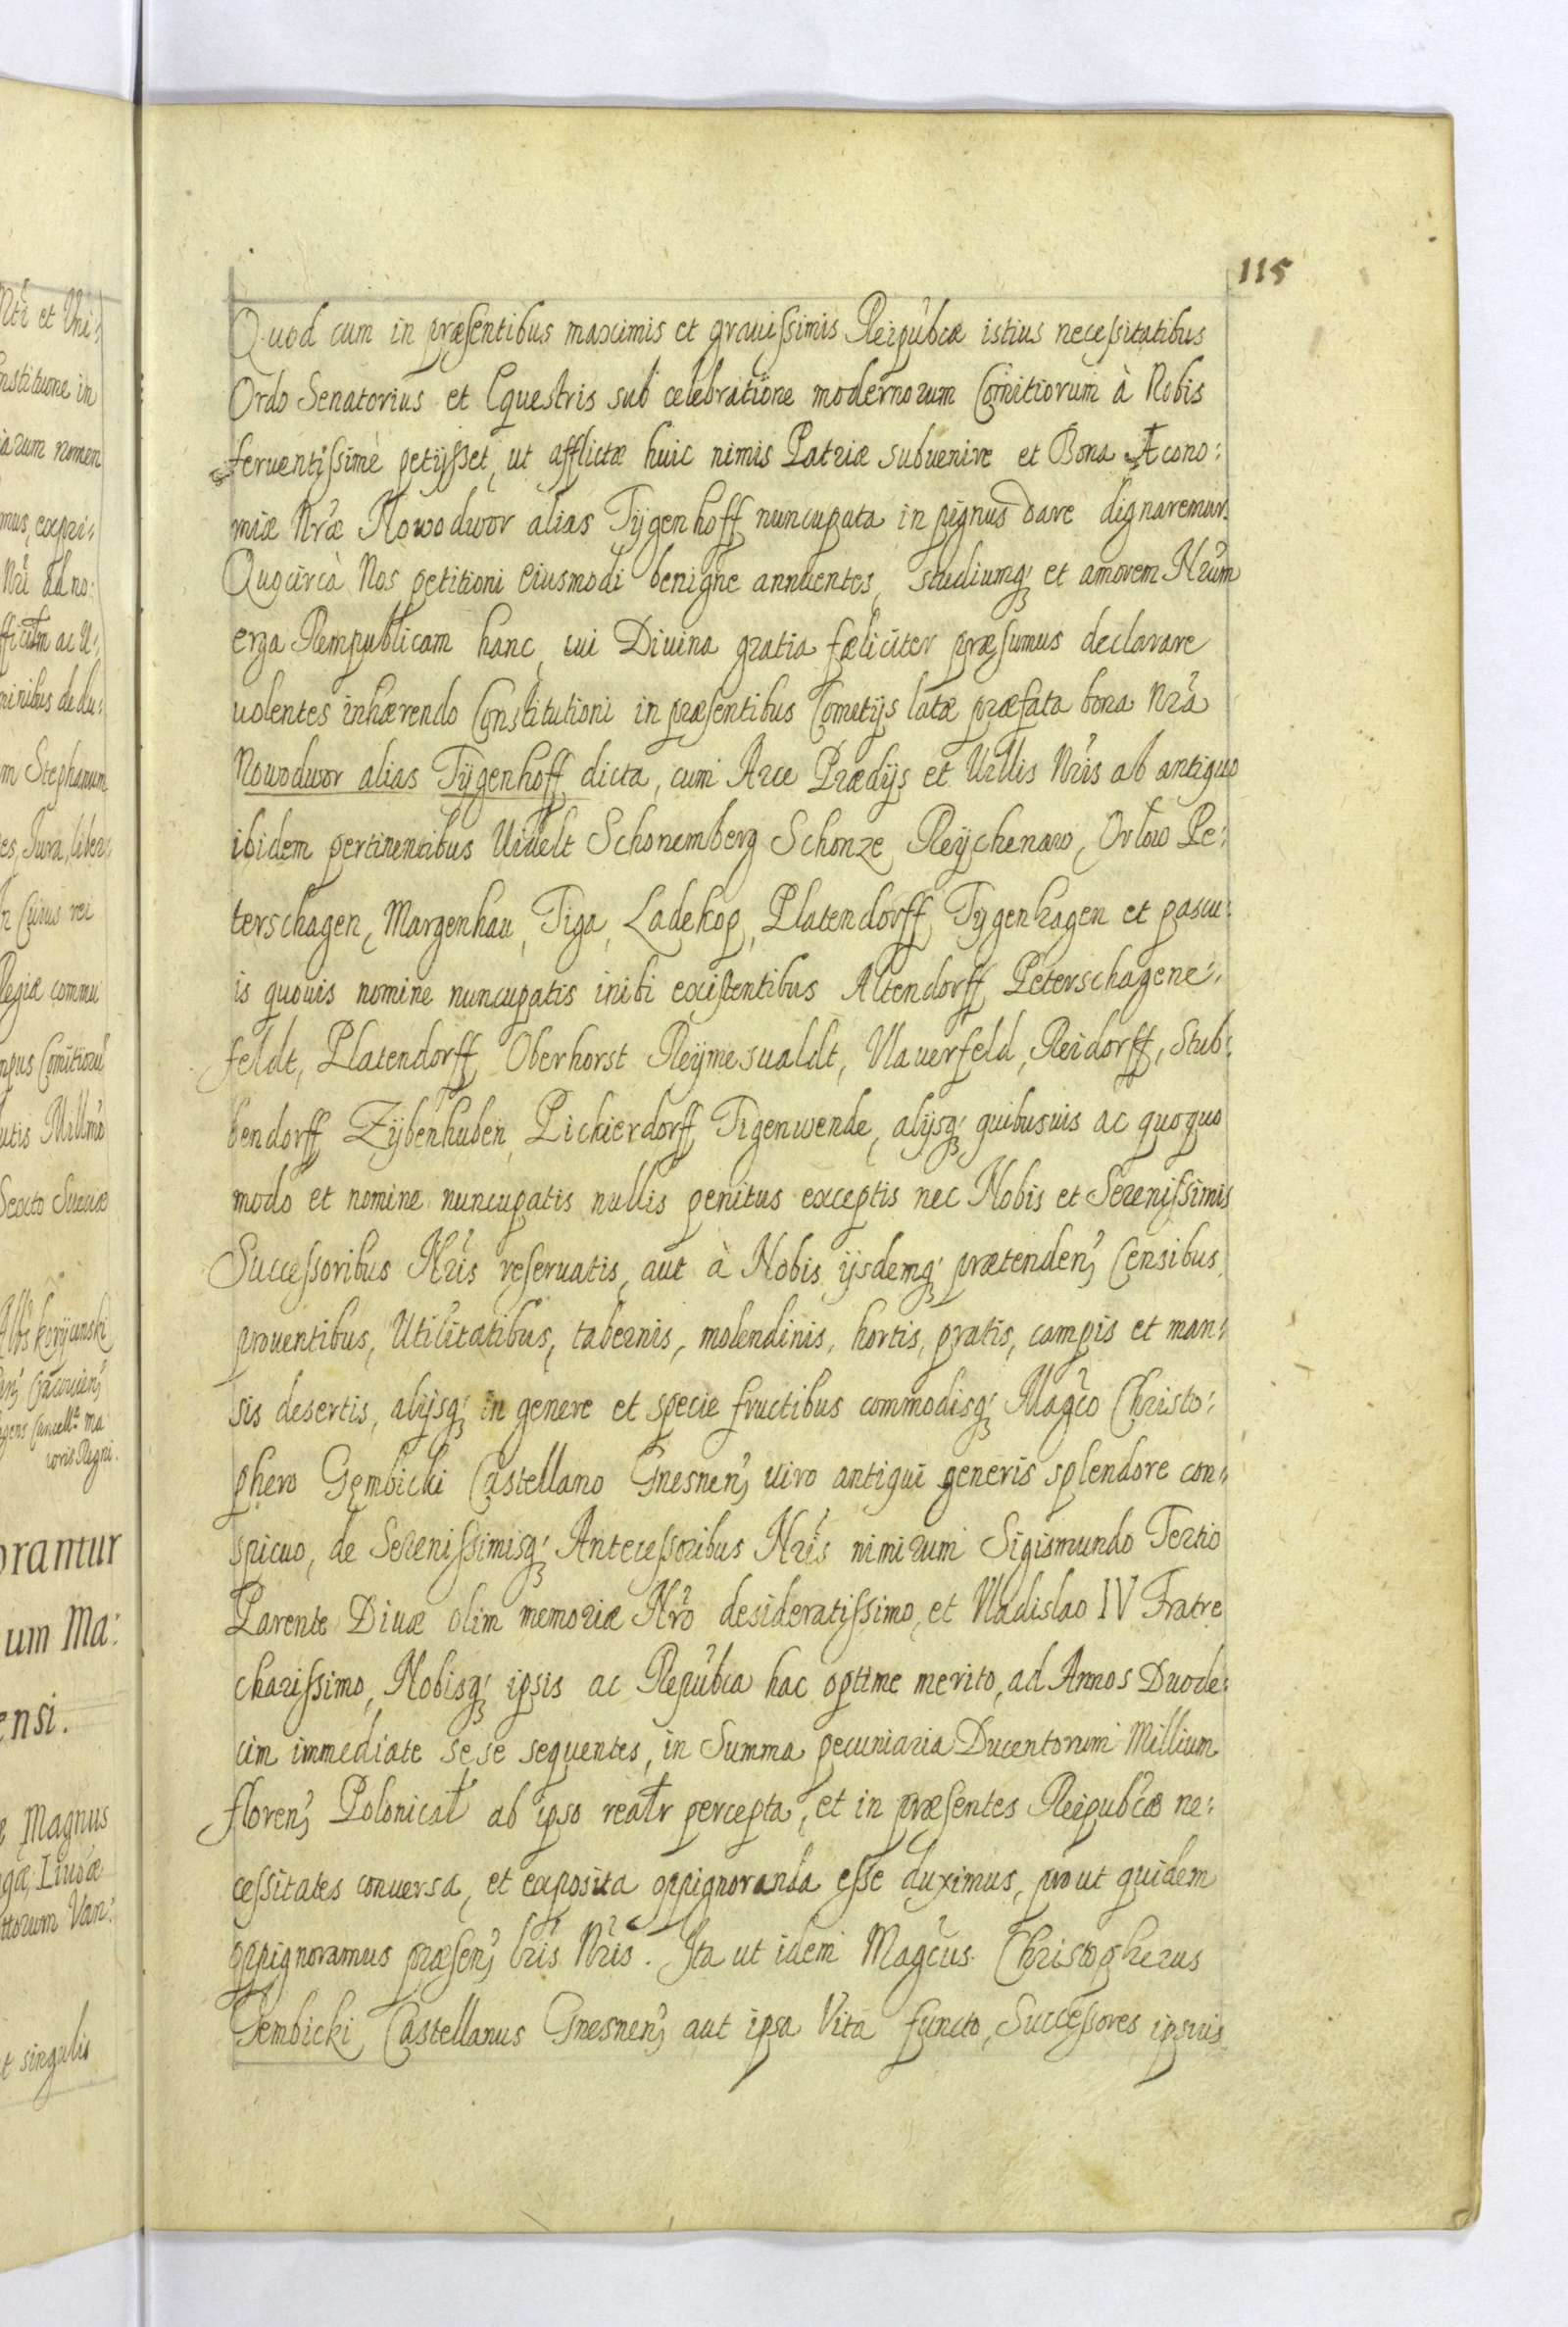 115
Quod cum in præsentibus maximis et gravissimis Reipub̃cæ istius necessitatibus
Ordo Senatorius et Equestris sub celebratione modernorum Comitiorum à Nobis
feruentissimè petijsset, ut afflictæ huic nimis Patriæ subuenire et Bona Æcono:
miæ Nr̃æ Nowodwor alias Tÿgenhoff nuncupata in pignus dare dignaremur.
Quocircà Nos petitioni eiusmodi benigne annuentes, studiumq; et amorem Nr̃um
erga Rempublicam hanc, cui Diuina gratia fæliciter præsumus declarare
uolentes inhærendo Constitutioni in præsentibus Cometijs latæ præfata bona Nr̃a
Nowodwor alias Tÿgenhoff dicta, cum Arce Prædijs et Villis Nr̃is ab antiquo
ibidem pertinentibus Schonemberg Schonze Reÿchenaw, Orlow Pe:
terschagen, Margenhau, Tiga, Ladekop, Platendorff, Tygenhagen et pascu:
is quouis nomine nuncupatis inibi existentibus Altendorff Peterschagene:
feldt, Platendorff, Oberhorst Reÿmesualdt, Vlauerfeld, Reidorff, Stub:
bendorff Zÿbenhuben, Pickierdorff Tigenwende, alijsq; quibusuis ac quoquo
modo et nomine nuncupatis nullis penitus exceptis nec Nobis et Serenissimis
Successoribus Nr̃is reseruatis, aut à Nobis ijsdemq; prætenden; Censibus
prouentibus, Utilitatibus, tabernis, molendinis, hortis, pratis, campis et man:
sis desertis, alijsq; in genere et specie fructibus commodisq; Magc̃o Christo:
phero Gęmbicki Castellano Gnesnen; uiro antiqui generis splendore con:
spicuo, de Serenissimisq; Antecessoribus Nr̃is nimirum Sigismundo Tertio
Parente Diuæ olim memoriæ Nr̃o desideratissimo, et Vladislao IV Fratre
charissimo, Nobisq; ipsis ac Repub̃ca hac optime merito, ad Annos Duode:
cim immediate se se sequentes, in Summa pecuniaria Ducentorum Millium
floren; Polonical̃ ab ipso real̃r percepta, et in præsentes Reipub̃cæ ne:
cessitates conuersa, et exposita oppignoranda esse duximus, prout quidem
oppignoramus præsen; lr̃is Nr̃is. Ita ut idem Magc̃us Christopherus
Gembicki Castellanus Gnesnen; aut ipsa Vita functo, Successores ipsius